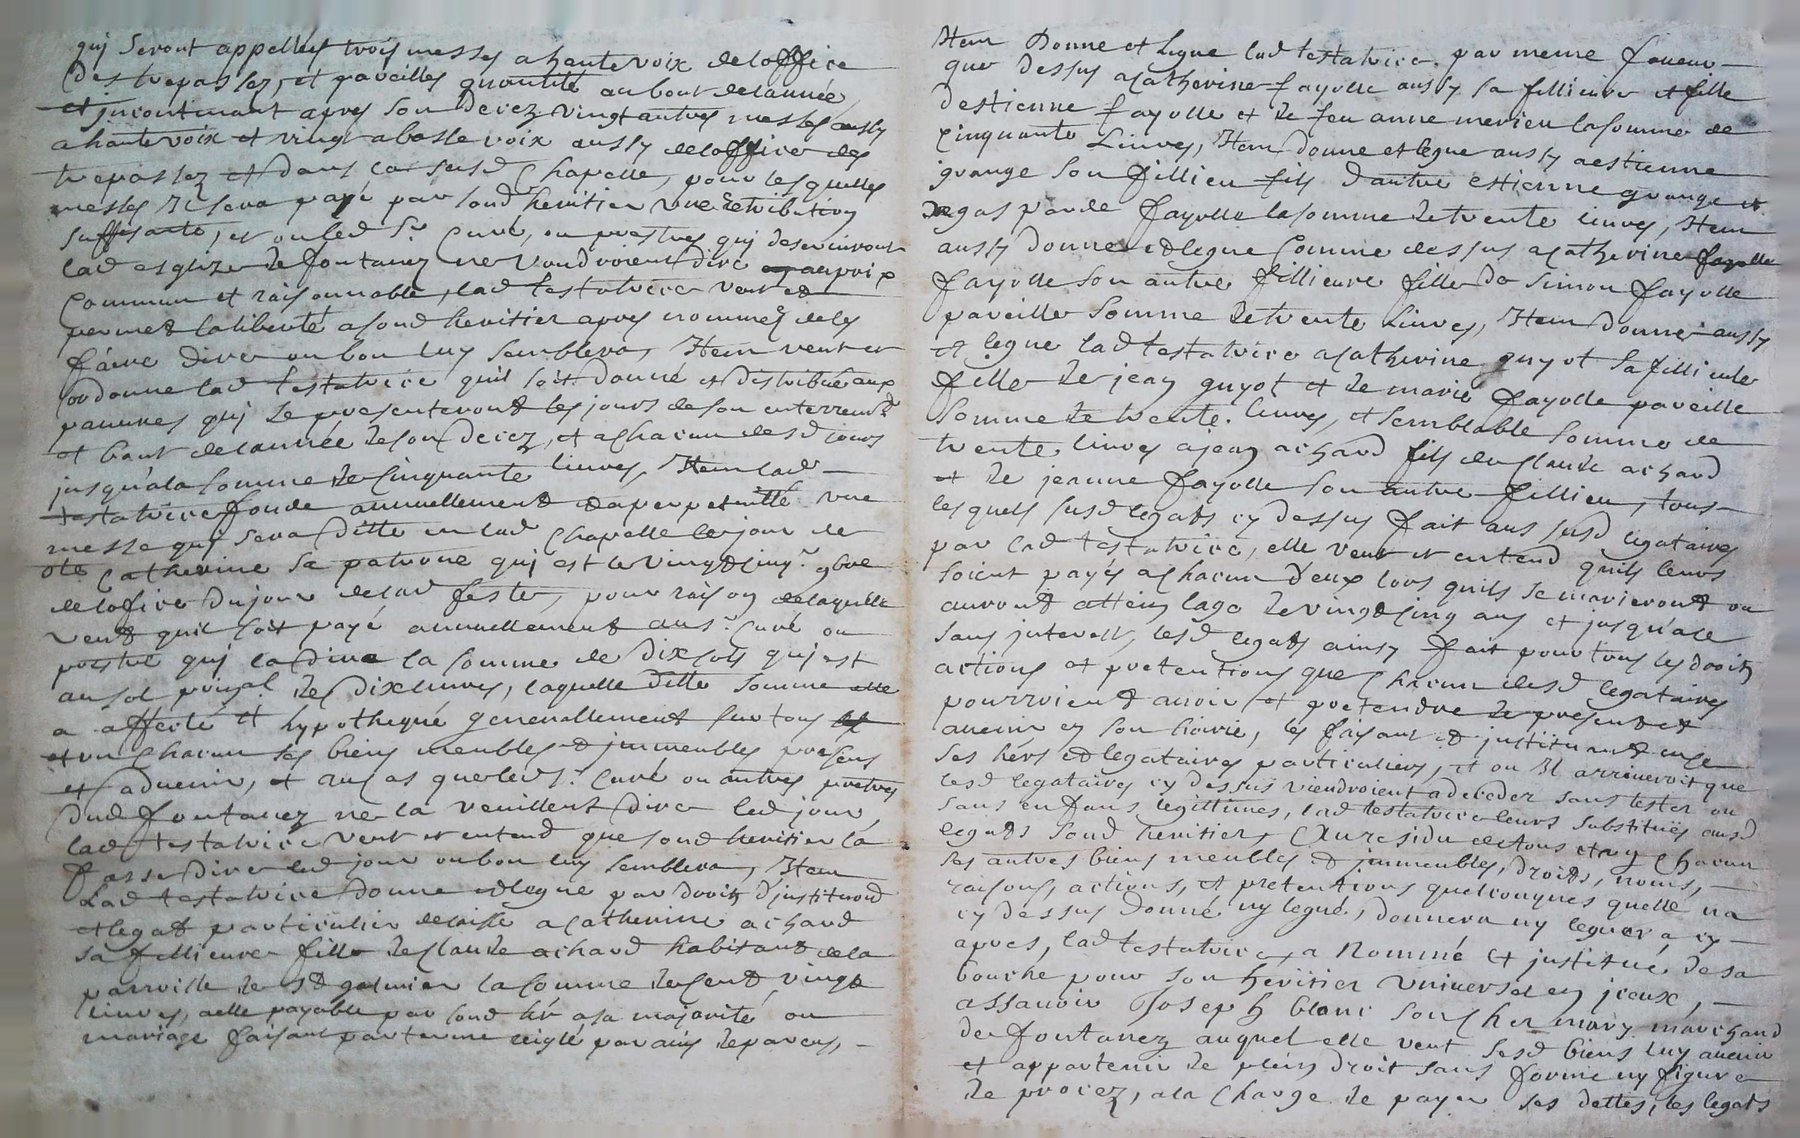 quj seront appellés trois messes a hautevoix deloffice
des trepassez, et pareilles quantité aubout delannée
et jncontinant apres son decez vingt autres messes aussy
a hautevoix et vingt abasse voix aussy deloffice des
trepassez et dans la susd chapelle, pour lesquelles
messes Il sera payé par sond heritier une retribution
suffisante, et ou led Sr Curé, ou prestres quj desserviront
lad esglize de fontanez ne voudroient dire au prix
commun et raisonnable, lad testatrice veut et
permet laliberté asond heritier apres nommé deles
faire dire ou bon luy semblera, Item veut et
ordonne lad testatrice quil soit donné et distribué aux
pauvres quj se presenteront les jours deson enterremt
et bout delannée deson decez, et achacun desd jours
jusquala somme de cinquante livres, Item lad
testatrice fonde annuellement et aperpetuitté une
messe quj sera ditte en lad chapelle lejour de
ste Catherine sa patrone quj est le vingt cinqe 9bre
delofice dujour delad feste, pour raison delaquelle
veut quil soit payé annuellement aus. Curé ou
prestre quj la dira la somme de dix sols quj est
au sol prinpal de dix livres, laquelle ditte somme elle
a affecté et hypothequé generallement sur tous
et un chacun ses biens meubles et jmmeubles presens
et advenir, et au cas queled sr Curé ou autres prestres
dud fontanez ne la veuillent dire led jour,
lad testatrice veut et entend que sond heritier la
fasse dire led jour ou bon luy semblera, Item
Lad testatrice donne et legue par droit d'jnstitution
et legat particulier delaisse a Catherine achard
sa fillieure fille de Claude achard habitant dela
parroisse de st galmier la somme de cent vingt
livres, aelle payable par sond her ala majorité ou
mariage faisant par terme reiglé par avis deparens,
Item Donne et Legue lad testatrice par meme faveur
que dessus a Catherine fayolle aussy sa fillieure et fille
destienne fayolle et de feu anne merieu lasomme de
cinquante Livres, Item donne et legue aussy a estienne
grange son fillieu fils dautre estienne grange et
de gasparde fayolle lasomme de trente livres, Item
aussy donne et legue comme dessus a catherine fayolle
fayolle son autre fillieure fille de Simon fayolle
pareille somme de trente Livres, Item donne aussy
et legue lad testatrice a catherine guyot sa fillieule
fille de jean guyot et de marie fayolle pareille
somme de trente livres, et semblable somme de
trente livres a jean achard fils de claude achard
et de jeanne fayolle son autre fillieu, tous
lesquels susd legats cy dessus fait aus susd legataires
par lad testatrice, elle veut et entend quils leurs
soient payés achacun deux lors quils se marieront ou
auront atteint lage de vingt cinq ans et jusqu'ace
sans jnterest, lesd legats ainsy fait pour tous les droits
actions et pretentions que chacun desd legataires
pourroient avoir et pretendre de present et
avenir en son hoirie, les faisant et jnstituant
ses hers et legataires particuliers, et ou Il arriveroit que
lesd legataires cy dessus viendroient a deceder sans tester ou
sans enfans legittimes, lad testatrice leurs substitue ausd
legats sond heritier, Au residu de tous et un chacun
ses autres biens meubles et jmmeubles, droits, noms,
raisons, actions, et pretentions quelconques quelle na
cy dessus donné ny legué, donnera ny leguera cy
apres, lad testatrice a Nommé et jnstitué desa
bouche pour son heritier universel en jceux,
assavoir Joseph blanc son cher mary marchand
de fontanez auquel elle veut sesd biens luy avenir
et appartenir de plein droit sans forme ny figure
de procez, ala charge de payer ses dettes, les legats